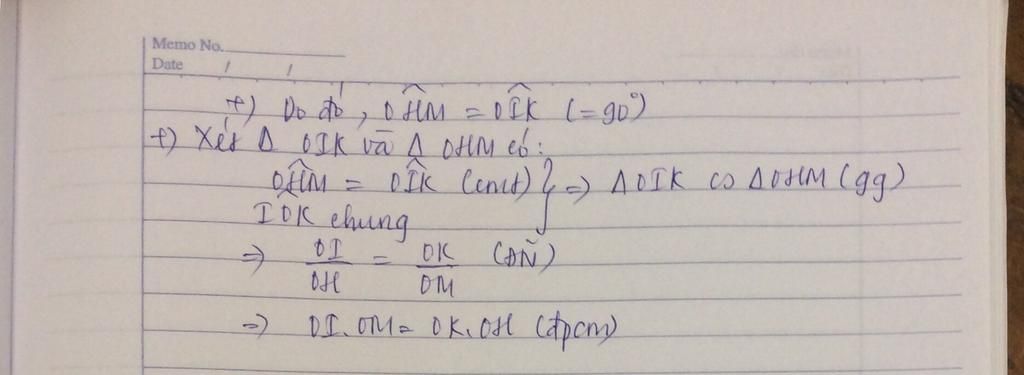 Memo No.
Date / /
+) Do đó, OĤM = OÎK (=90°)
+) Xét Δ OIK và Δ OHM có:
OĤM = OÎK (cmt) } => ΔOIK ∽ ΔOHM (gg)
IÔK chung
=> OI/OH = OK/OM (ĐN)
=> OI.OM = OK.OH (đpcm)